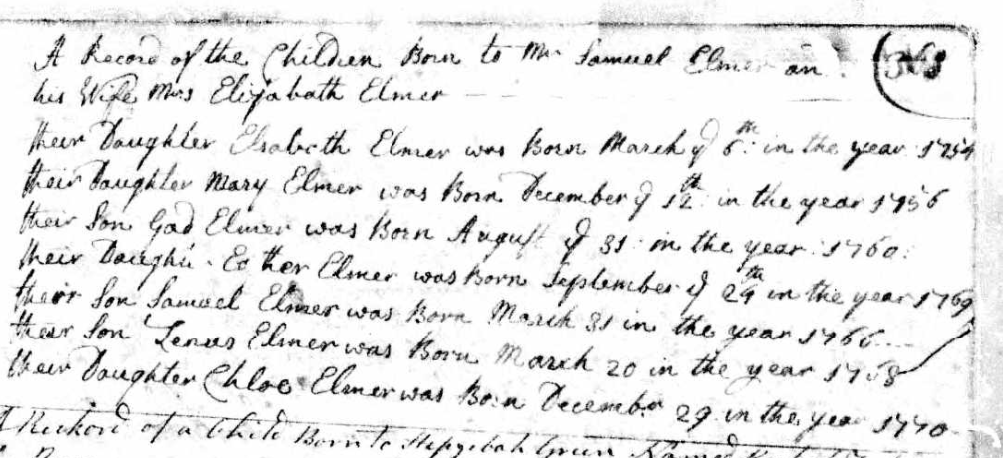 A Record of the Children Born to Mr Samuel Elmer an
368
his Wife Mrs Elizabath Elmer
their Daughter Elsabeth Elmer was Born March ye 6th in the year 1754
their Daughter Mary Elmer was Born December ye 12th in the year 1756
their Son Gad Elmer was Born August ye 31 in the year 1760
their Daughtr Esther Elmer was Born September ye 29th in the year 1769
their Son Samuel Elmer was Born March 31 in the year 1766
their Son Zenas Elmer was Born March 20 in the year 1768
their Daughter Chloe Elmer was Born December 29 in the year 1770
A Reckord of a Child Born to Hepzibah Green Named